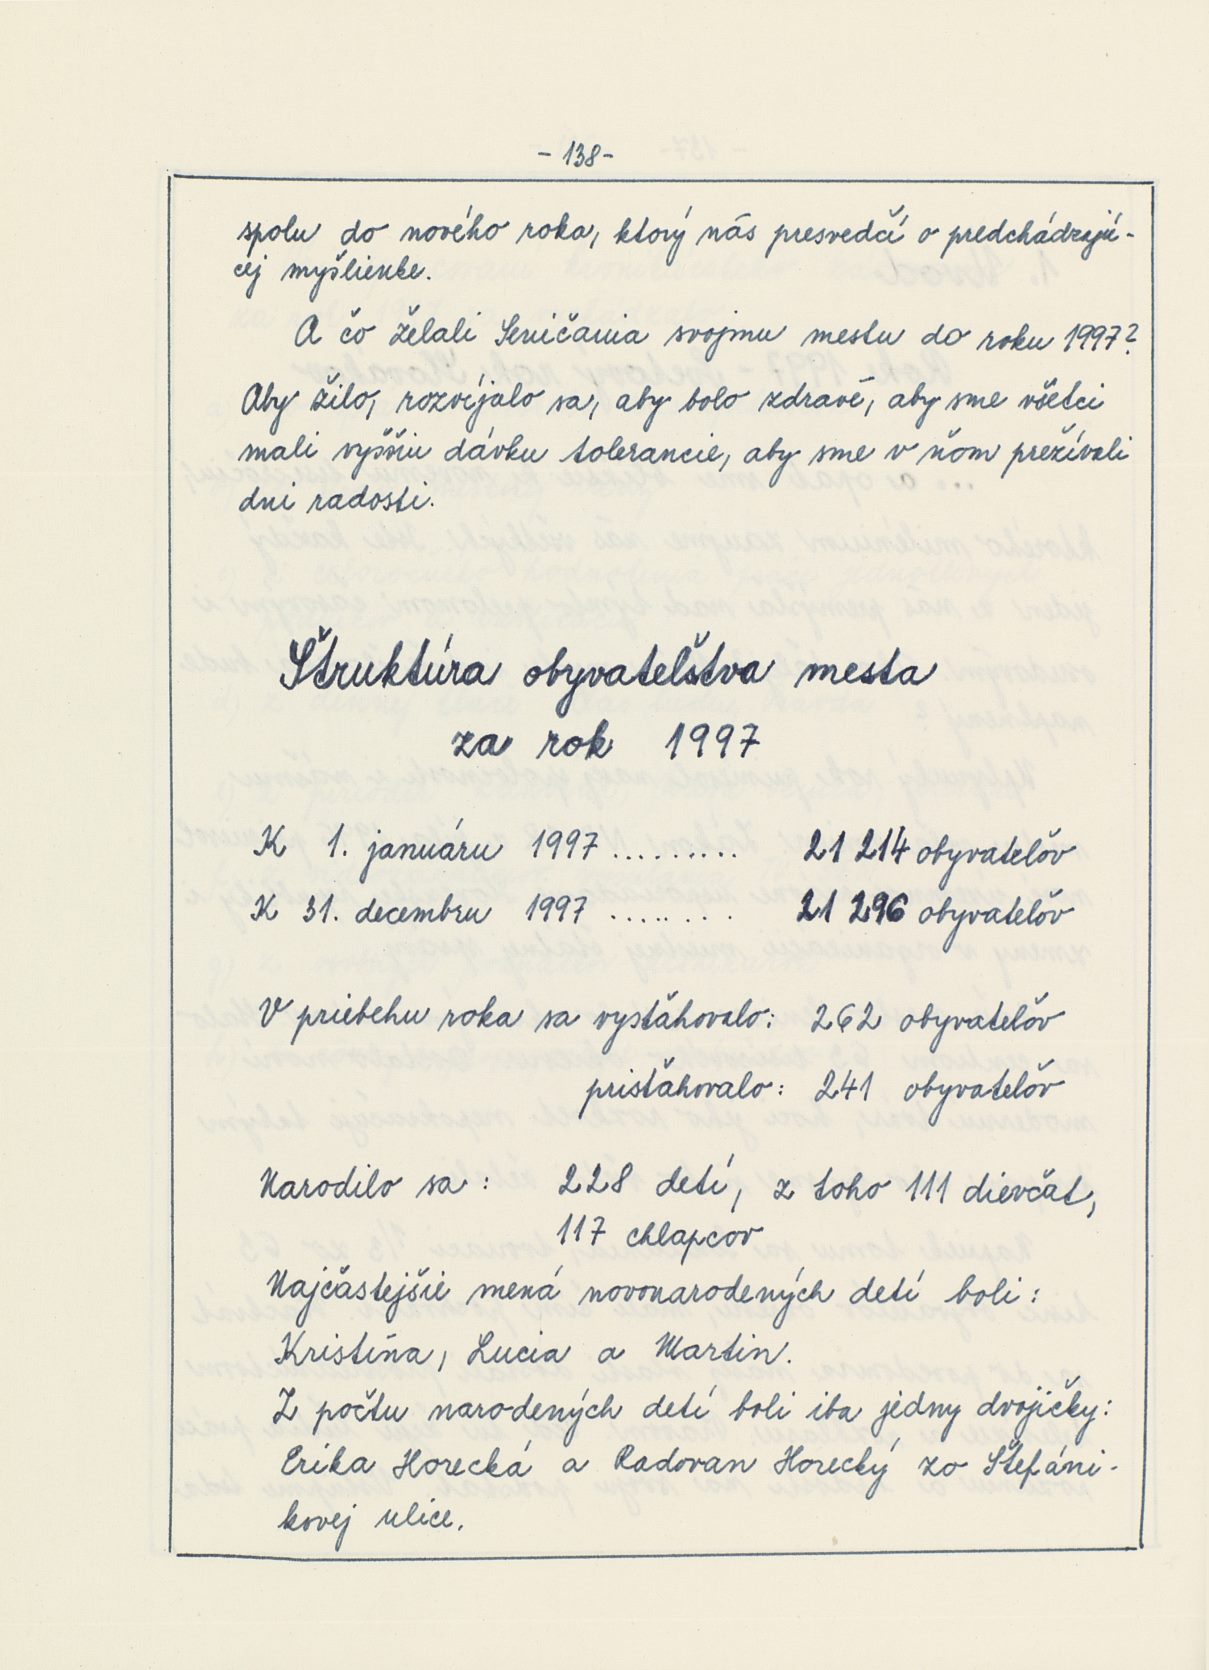 - 138 -
spolu do nového roka, ktorý nás presvedčí o predchádzajú-
cej myšlienke.
A čo želali Seničania svojmu mestu do roku 1997?
Aby žilo, rozvíjalo sa, aby bolo zdravé, aby sme všetci
mali vyššiu dávku tolerancie, aby sme v ňom prežívali
dni radosti.
Štruktúra obyvateľstva mesta
za rok 1997
K 1. januáru 1997 ......... 21 214 obyvateľov
K 31. decembru 1997 ........ 21 296 obyvateľov
V priebehu roka sa vysťahovalo: 262 obyvateľov
prisťahovalo: 241 obyvateľov
Narodilo sa: 228 detí, z toho 111 dievčat,
117 chlapcov
Najčastejšie mená novonarodených detí boli:
Kristína, Lucia a Martin.
Z počtu narodených detí boli iba jedny dvojičky:
Erika Horecká a Radovan Horecký zo Štefáni-
kovej ulice.